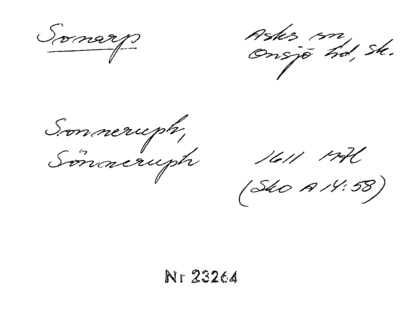 Sonarp
Asks sn,
Onsjö hd, Sk.
Sonneruph,
Sönneruph
1611 Mfl
(Sko A 14:58)
Nr 23264